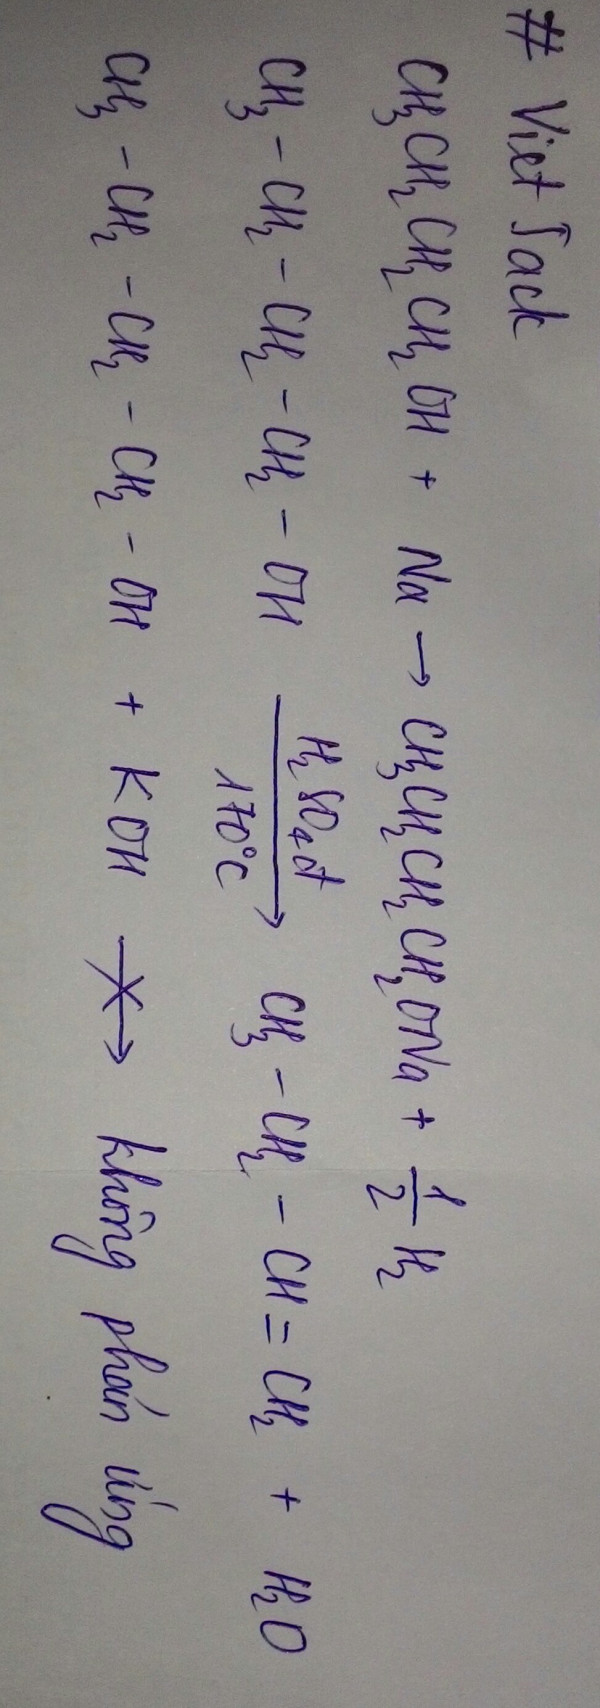 # VietJack
CH₃CH₂CH₂CH₂OH + Na → CH₃CH₂CH₂CH₂ONa + 1/2 H₂
CH₃ – CH₂ – CH₂ – CH₂ – OH —H₂SO₄ đ, 170°C→ CH₃ – CH₂ – CH = CH₂ + H₂O
CH₃ – CH₂ – CH₂ – CH₂ – OH + KOH –X→ không phản ứng